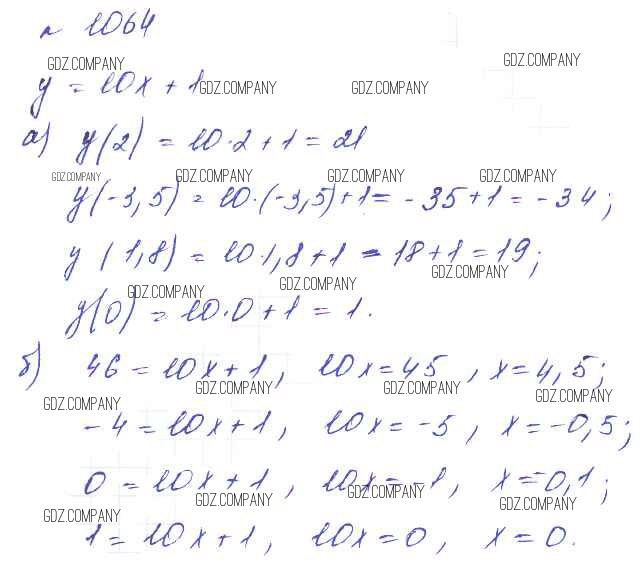 № 1064
GDZ.COMPANY GDZ.COMPANY
y = 10x + 1 GDZ.COMPANY GDZ.COMPANY
а) y(2) = 10·2+1 = 21
GDZ.COMPANY GDZ.COMPANY GDZ.COMPANY GDZ.COMPANY
y(-3,5) = 10·(-3,5)+1 = -35+1 = -34;
y(1,8) = 10·1,8+1 = 18+1 = 19;
GDZ.COMPANY
GDZ.COMPANY GDZ.COMPANY
y(0) = 10·0+1 = 1.
б) 46 = 10x+1, 10x = 45, x = 4,5;
GDZ.COMPANY GDZ.COMPANY GDZ.COMPANY GDZ.COMPANY
-4 = 10x+1, 10x = -5, x = -0,5;
0 = 10x+1, 10x = -1, x = -0,1;
GDZ.COMPANY GDZ.COMPANY GDZ.COMPANY GDZ.COMPANY
1 = 10x+1, 10x = 0, x = 0.